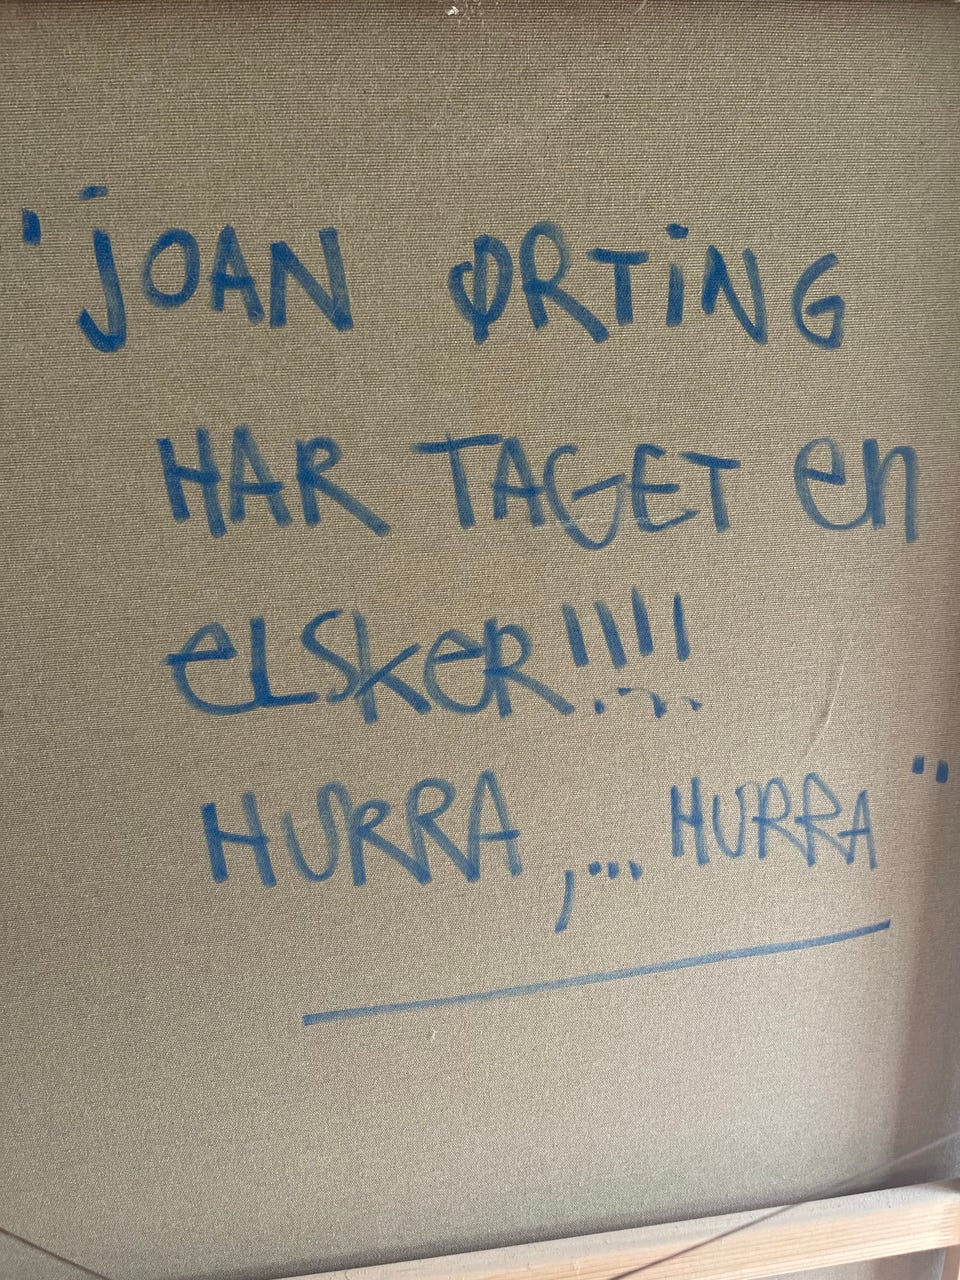 "JOAN ØRTING
HAR TAGET en
eLSKeR!!!!
HURRA,... HURRA"